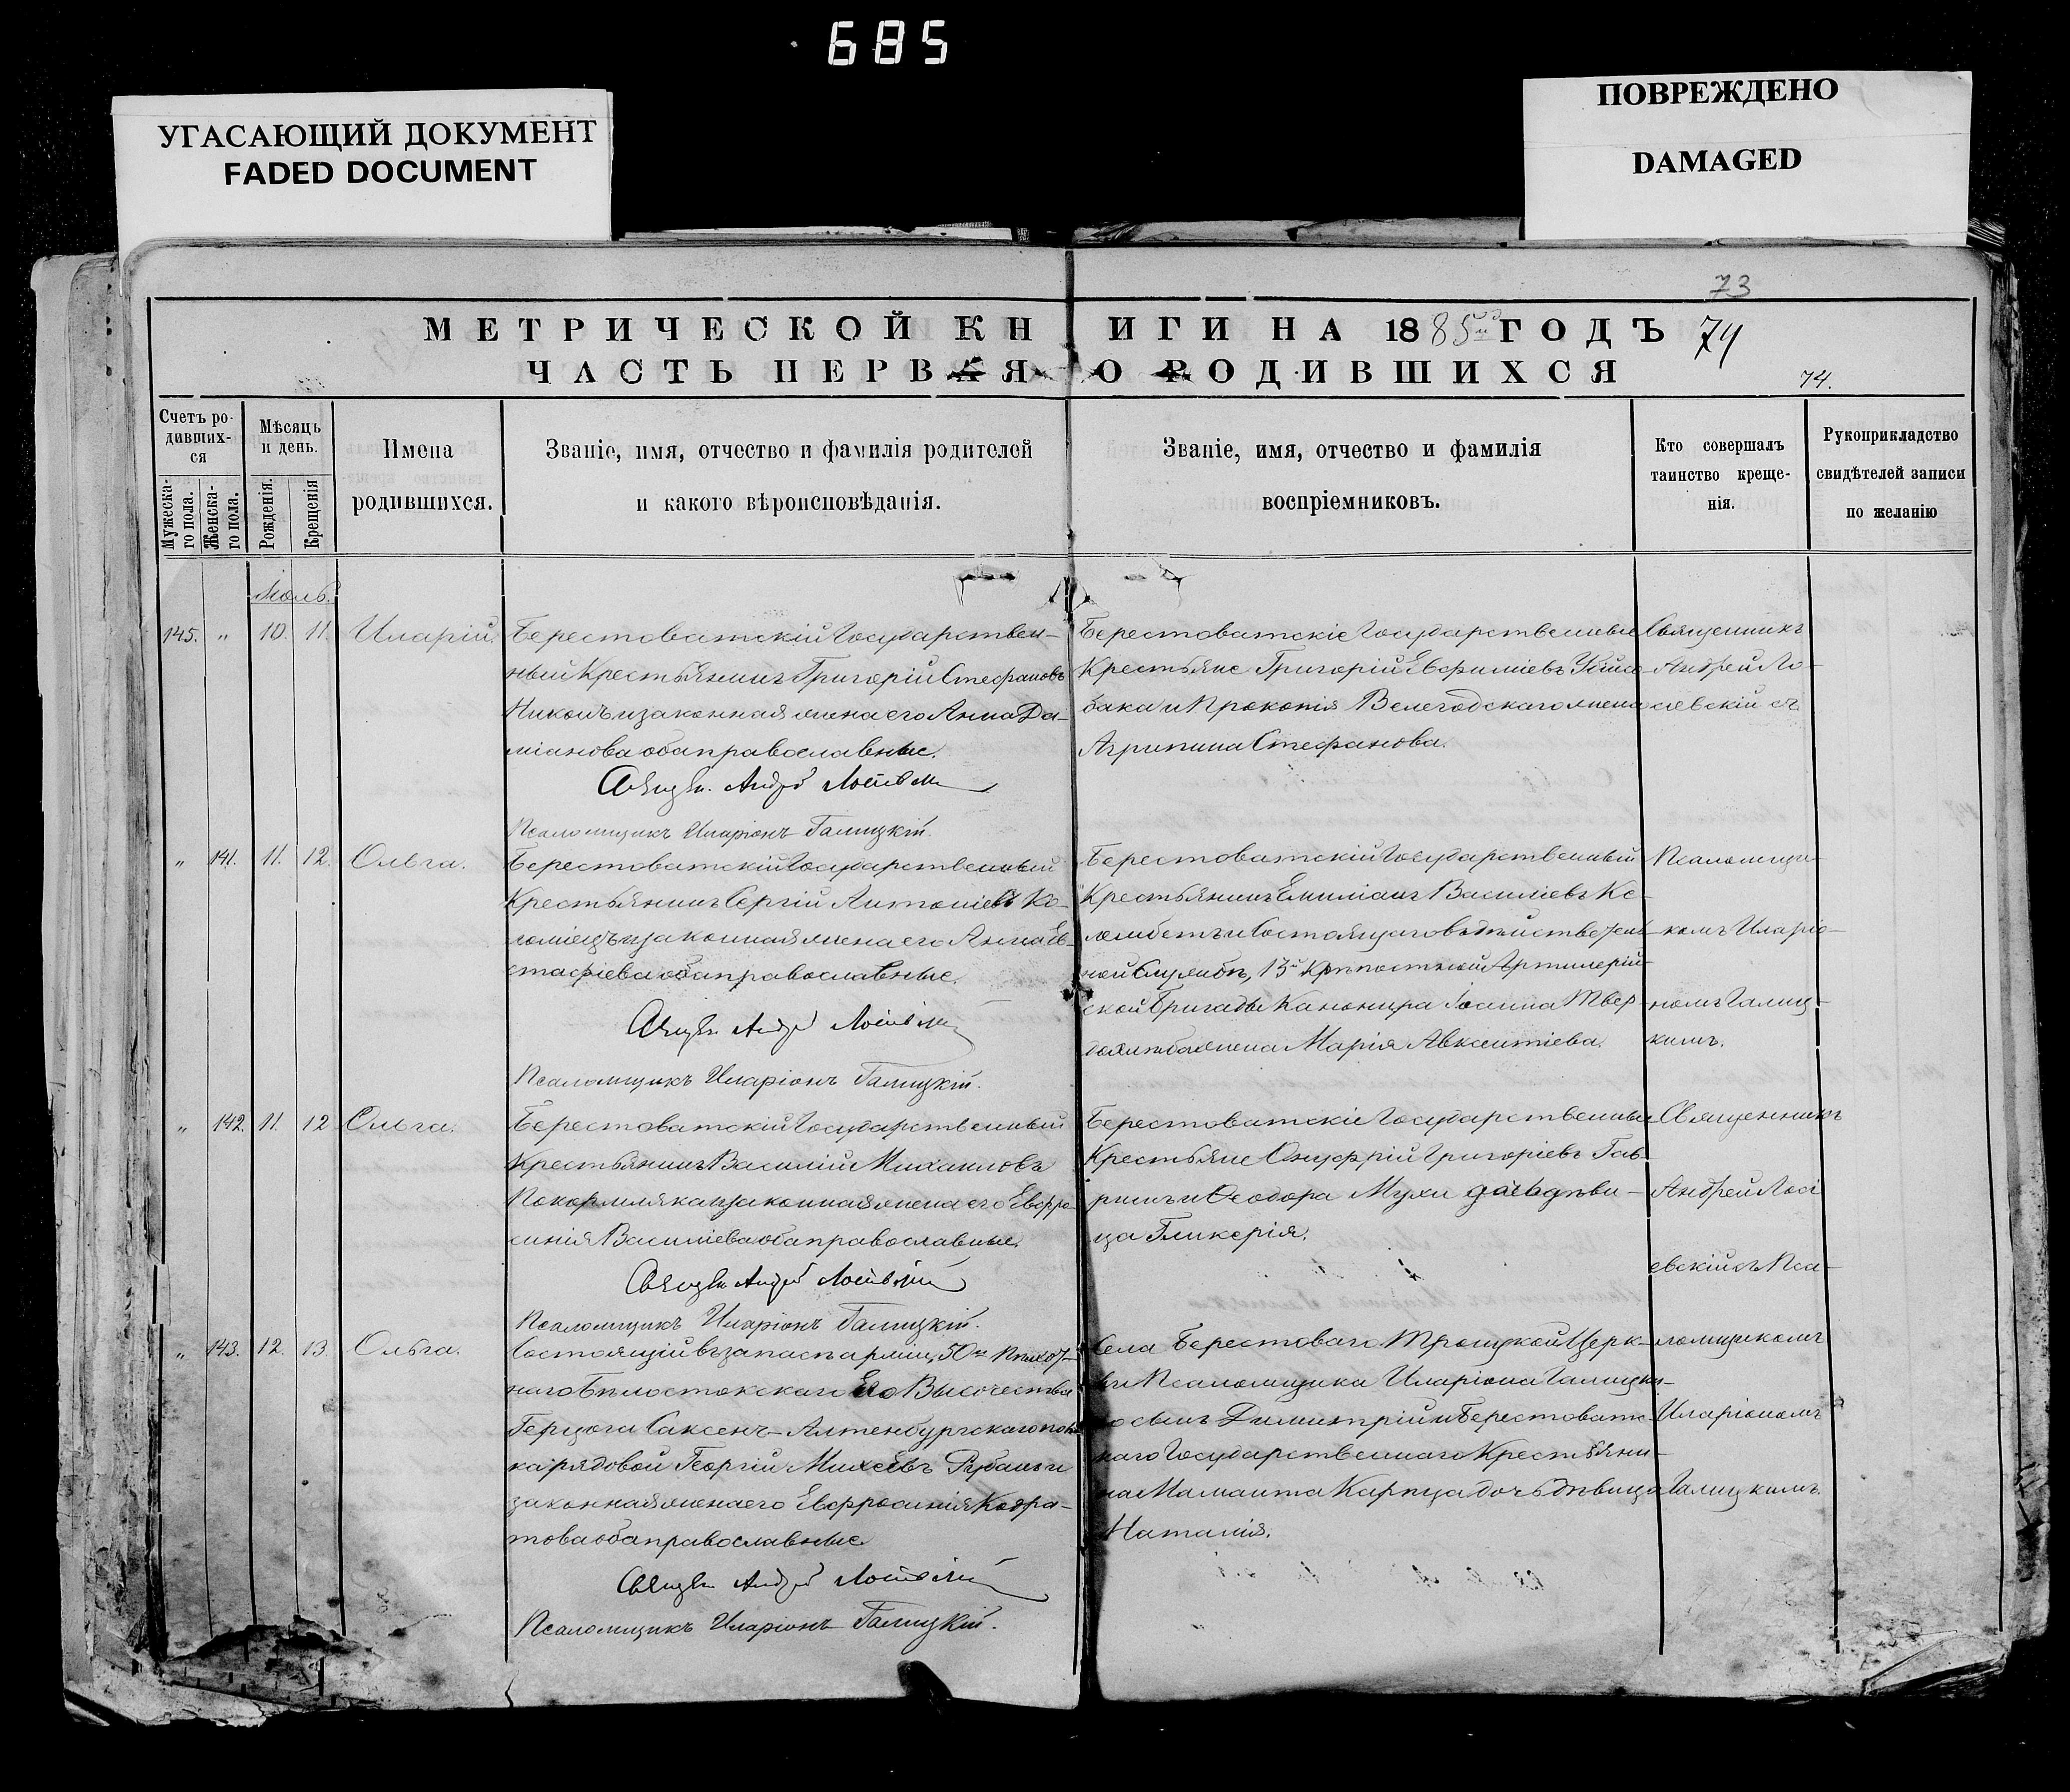 685
УГАСАЮЩИЙ ДОКУМЕНТ
FADED DOCUMENT
ПОВРЕЖДЕНО
DAMAGED
73
МЕТРИЧЕСКОЙ КНИГИ НА 1885 ГОДЪ
74
ЧАСТЬ ПЕРВАЯ О РОДИВШИХСЯ
74.
Счетъ ро-
дивших-
ся
Мужеска-
го пола.
Женска-
го пола.
Мѣсяцъ
и день.
Рожденія.
Крещенія
Имена
родившихся.
Званіе, имя, отчество и фамилія родителей
и какого вѣроисповѣданія.
Званіе, имя, отчество и фамилія
воспріемниковъ.
Кто совершалъ
таинство креще-
нія.
Рукоприкладство
свидѣтелей записи
по желанію
Іюль.
145. " 10. 11. Иларій.
Берестоватскій Государствен-
ный Крестьянинъ Григорій Стефановъ
и законная жена его Анна Да-
міанова оба православные.
Священ. Андрей
Псаломщикъ Иларіонъ Галицкій.
Берестоватскіе Государственные
Крестьяне Григорій Евфиміевъ
бака и Прокопія Велегодскаго жена
Агрипина Стефанова.
Священникъ
Андрей Ло-
сіевскій съ
" 141. 11. 12. Ольга.
Берестоватскій Государственный
Крестьянинъ Сергій Антоніевъ Ко-
ломіецъ и законная жена его Анна Ев-
стафіева оба православные.
Священ. Андрей
Псаломщикъ Иларіонъ Галицкій.
Берестоватскій Государственный
Крестьянинъ Емиліанъ Василіевъ Ке-
лембетъ и Состоящаго въ дѣйствитель-
ной Службѣ, 13й Крѣпостной Артилерій-
ской Бригады Канонира Іоанна Твер-
жена Марія Авксентіева.
Псаломщи-
комъ Иларіо-
номъ Галиц-
кимъ.
" 142. 11. 12 Ольга.
Берестоватскій Государственный
Крестьянинъ Василій Михаиловъ
Покормляка и законная жена его Евфро-
синія Василіева оба православные.
Священ. Андрей
Псаломщикъ Иларіонъ Галицкій.
Берестоватскіе Государственные
Крестьяне Онуфрій Григоріевъ Гав-
ришъ и Ѳеодора Мухи дочь дѣви-
ца Гликерія.
Священникъ
Андрей Лосі
евскій съ Пса-
" 143. 12. 13. Ольга.
Состоящій въ запасѣ арміи, 50го Пѣхот-
наго Бѣлостокскаго Его Высочества
Герцога Саксенъ-Алтенбургскаго пол-
ка рядовой Георгій Михеевъ Рубанъ и
законная жена его Евфросинія Кодра-
това оба православные
Священ. Андрей
Псаломщикъ Иларіонъ Галицкій.
Села Берестоваго Троицкой Церк-
ви Псаломщика Иларіона Галицка-
го сынъ Димитрій и Берестоватс-
каго Государственнаго Крестьяни-
на Маманта Карпца дочь дѣвица
Наталія.
ломщикомъ
Иларіономъ
Галицкимъ.